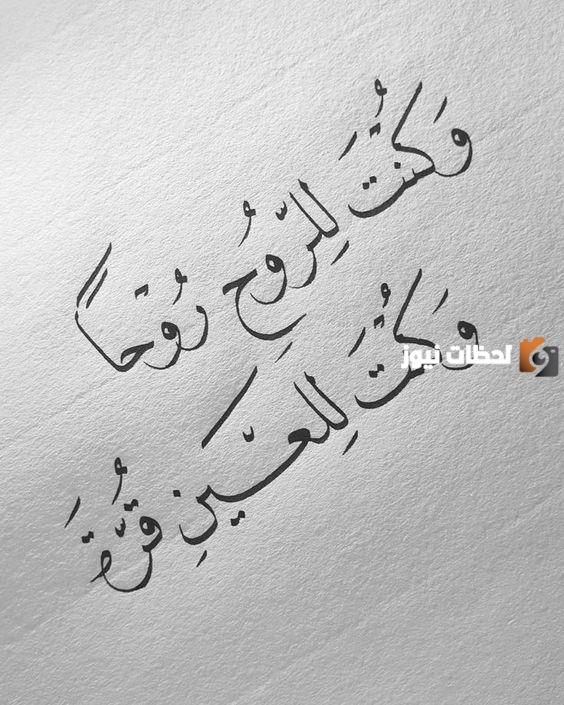 وَكُنْتَ لِلرّوُحِ رُوْحاً
وَكُنْتَ لِلعَّينِ قُرَّةَ
لحظات نيوز